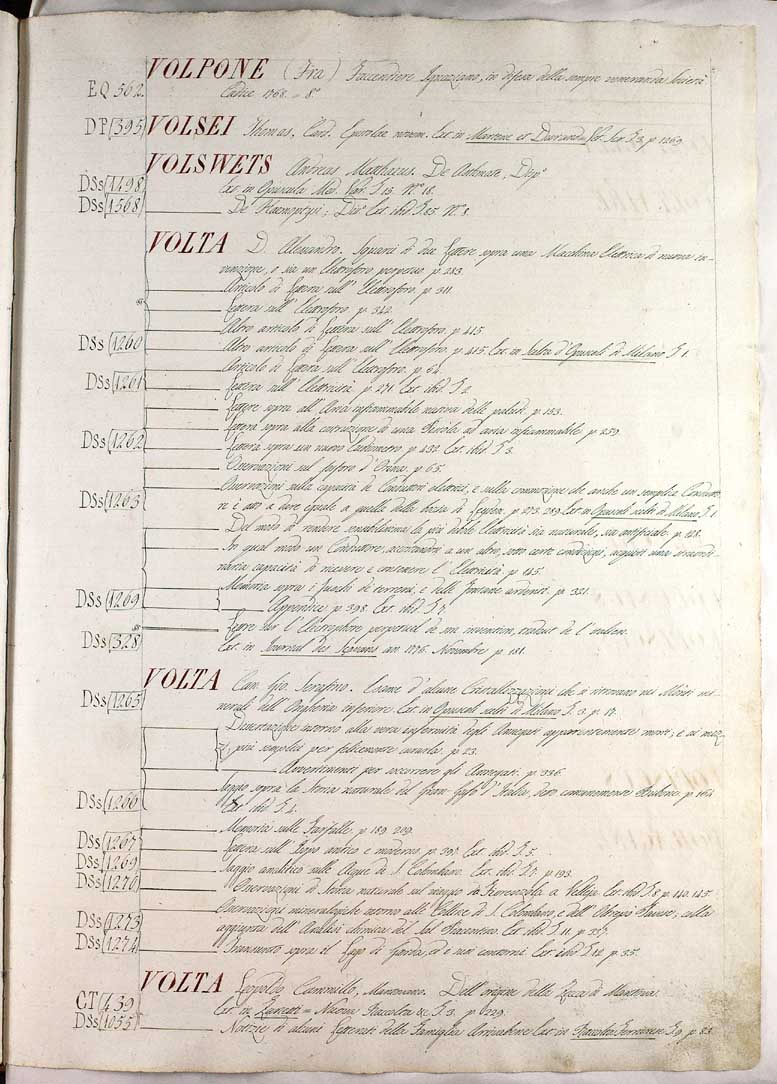 VOLPONE (Fra) Faccendiere Ignaziano, in difesa della sempre veneranda Società
EQ 562. Cadice 1768. = 8°
DP 395 VOLSEI Thomas. Card. Epistolae novem. Ext. in Martene et Durand = Vet. Scr. T. 3. p. 1269.
VOLSWETS Andreas Matthaeus. De Asthmate, Disp.°
DSs 1498 Ext. in Opuscula Med. T. 13. N.° 18.
DSs 1568 De Haemoptysi; Dis.° Ext. ibid. T. 25. N.° 8.
VOLTA D. Alessandro. Squarci di due Lettere sopra una Macchina Elettrica di nuova in-
venzione, o sia un Elettroforo perpetuo p. 283.
Articolo di Lettera sull' Elettroforo. p. 311.
Lettera sull' Elettroforo. p. 342.
Altro articolo di Lettera sull' Elettroforo. p. 415.
DSs 1260 Altro articolo di Lettera sull' Elettroforo. p. 415. Ext. in Scelta d'Opuscoli di Milano T. 1.
Articolo di Lettera sull' Elettroforo. p. 64.
DSs 1261 Lettera sull' Elettricità p. 271. Ext. ibid. T. 2.
Lettere sopra all' Aria infiammabile nativa delle paludi. p. 153.
Lettera sopra alla costruzione di una Pistola ad aria infiammabile p. 259.
DSs 1262 Lettera sopra un nuovo Eudiometro p. 432. Ext. ibid. T. 3.
Osservazioni sul fosforo d'Orina. p. 65.
Osservazioni sulla capacità de' Conduttori elettrici, e sulla commozione che anche un semplice Condutto-
DSs 1263 re è atto a dare eguale a quella della boccia di Leyden. p. 273. 289. Ext. in Opuscoli scelti di Milano T. 1.
Del modo di rendere sensibilissima la più debole Elettricità sia naturale, sia artificiale p. 128.
In qual modo un Conduttore, accostandosi a un altro, sotto certe condizioni, acquisti una straordi-
naria capacità di ricevere e contenere l' Elettricità p. 145.
Memoria sopra i fuochi de' terreni, e delle fontane ardenti. p. 321.
DSs 1269 Appendice p. 398. Ext. ibid. T. 7.
Lettre sur l' Electrophore perpetuel de son invention, traduit de l' italien.
DSs 328 Ext. in Journal des Sçavans an 1776. Novembre p. 181.
VOLTA Can. Gio. Serafino. Esame d'alcune Cristallizzazioni che si ritrovano nei Monti mi-
DSs 1265 nerali dell' Ungheria inferiore. Ext. in Opuscoli scelti di Milano T. 3. p. 17.
Dissertazione intorno alla vera infermità degli Annegati apparentemente morti, e ai mez-
zi più semplici per felicemente curarla p. 23.
Avvertimenti per soccorrere gli Annegati. p. 336.
Saggio sopra la Storia naturale del Gran Gufo d' Italia, detto comunemente Barbone p. 164.
DSs 1266 Ext. ibid. T. 4.
Memorie sulle Farfalle. p. 189. 289.
DSs 1267 Lettera sull' Bisso antico e moderno p. 397. Ext. ibid. T. 5.
DSs 1269 Saggio analitico sulle Acque di S. Colombano. Ext. ibid. T. 7. p. 193.
DSs 1270 Osservazioni di Storia naturale sul viaggio da Fiorenzola a Velleja Ext. ibid. T. 8. p. 140. 145.
Osservazioni mineralogiche intorno alle Colline di S. Colombano, e dell' Oltrepò Pavese, colla
DSs 1273 aggiunta dell' Analisi chimica del Sal Piacentino Ext. ibid. T. 11. p. 337.
DSs 1274 Transunto sopra il Lago di Garda, ed i suoi contorni Ext. ibid. T. 12. p. 35.
VOLTA Leopoldo Cammillo, Mantovano. Dell' origine della Zecca di Mantova.
CT 439 Ext. in Zanetti = Nuova Raccolta &c. T. 3. p. 229.
DSs 1055 Notizie di alcuni Letterati della Famiglia Arrivabene Ext. in Raccolta Ferrarese T. 9. p. 83.